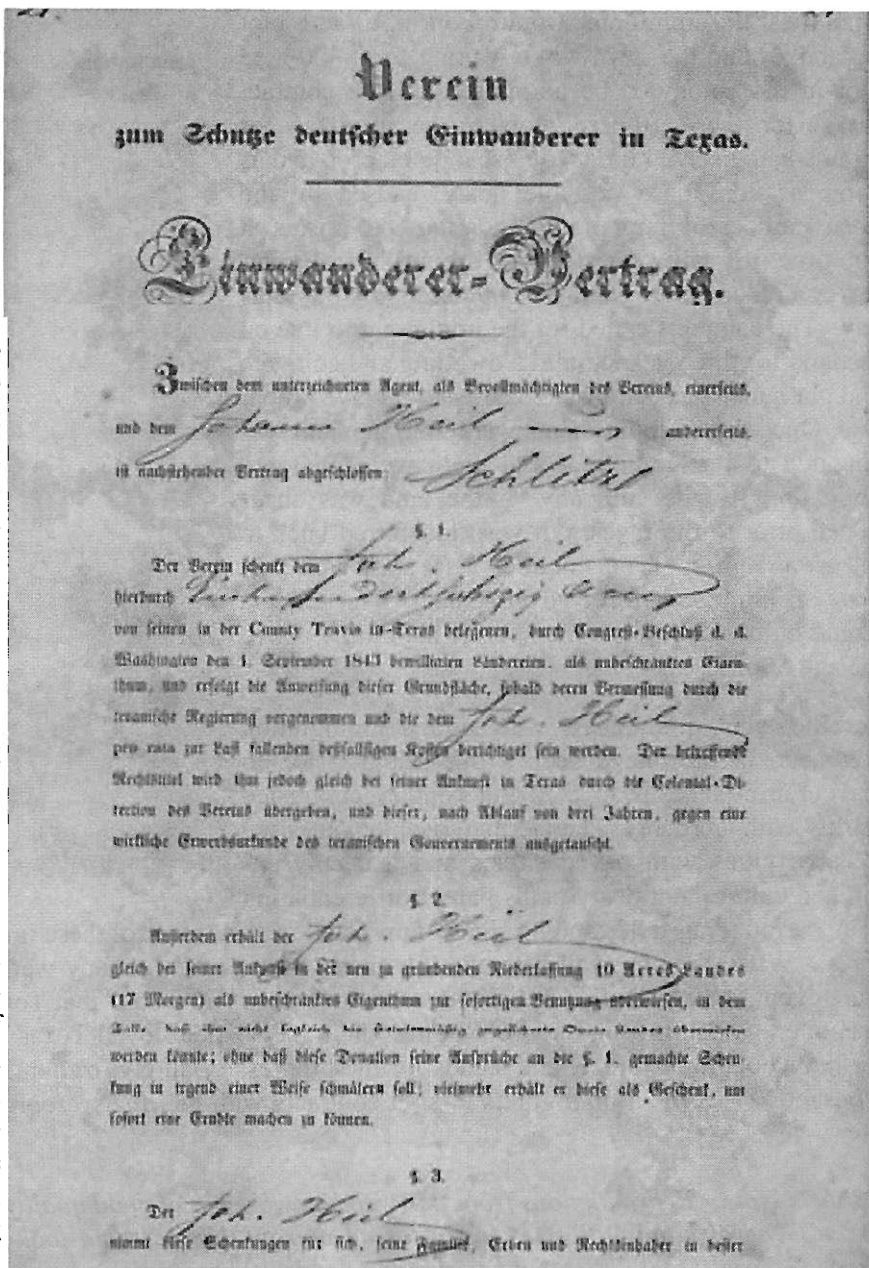 Verein
zum Schutze deutscher Einwanderer in Texas.
Einwanderer-Vertrag.
Zwischen dem unterzeichneten Agent, als Bevollmächtigten des Vereins, einerseits,
und dem Johann Heil andererseits,
ist nachstehender Vertrag abgeschlossen: Schlitz
§. 1.
Der Verein schenkt dem Joh. Heil
hierdurch Acres
von seinen in der County Travis in Texas belegenen, durch Congreß-Beschluß d. d.
Washington den 1. September 1843 bewilligten Ländereien, als unbeschränktes Eigen-
thum, und erfolgt die Anweisung dieser Grundfläche, sobald deren Vermessung durch die
texanische Regierung vorgenommen und die dem Joh. Heil
pro rata zur Last fallenden deßfallsigen Kosten berichtiget sein werden. Der betreffende
Rechtstitel wird ihm jedoch gleich bei seiner Ankunft in Texas durch die Colonial-Di-
rection des Vereins übergeben, und dieser, nach Ablauf von drei Jahren, gegen eine
wirkliche Erwerbsurkunde des texanischen Gouvernements ausgetauscht.
§. 2.
Außerdem erhält der Joh. Heil
gleich bei seiner Ankunft in der neu zu gründenden Niederlassung 10 Acres Landes
(17 Morgen) als unbeschränktes Eigenthum zur sofortigen Benutzung überwiesen, in dem
Falle, daß ihm nicht sogleich die Landes überwiesen
werden könnte; ohne daß diese Donation seine Ansprüche an die §. 1. gemachte Schen-
kung in irgend einer Weise schmälern soll; vielmehr erhält er diese als Geschenk, um
sofort eine Erndte machen zu können.
§. 3.
Der Joh. Heil
nimmt diese Schenkungen für sich, seine Familie, Erben und Rechtsinhaber in bester